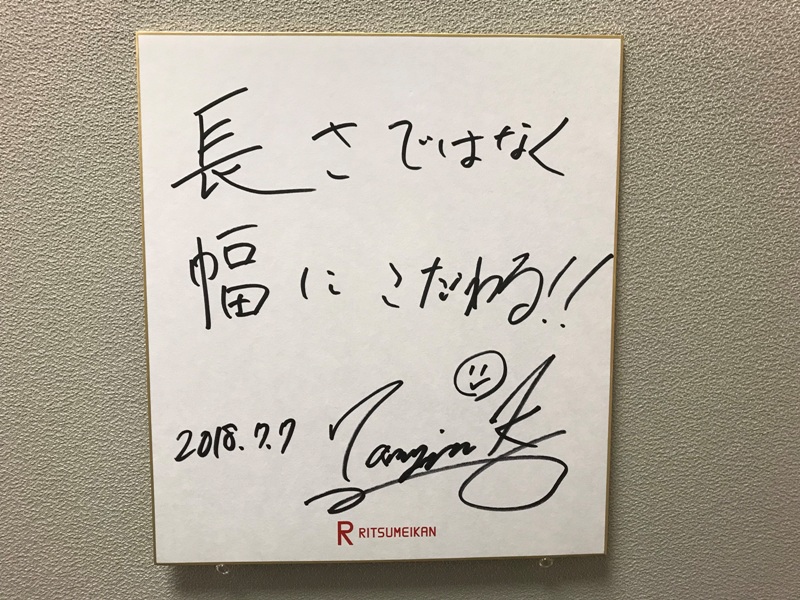 長さではなく
幅にこだわる!!
2018.7.7
R RITSUMEIKAN